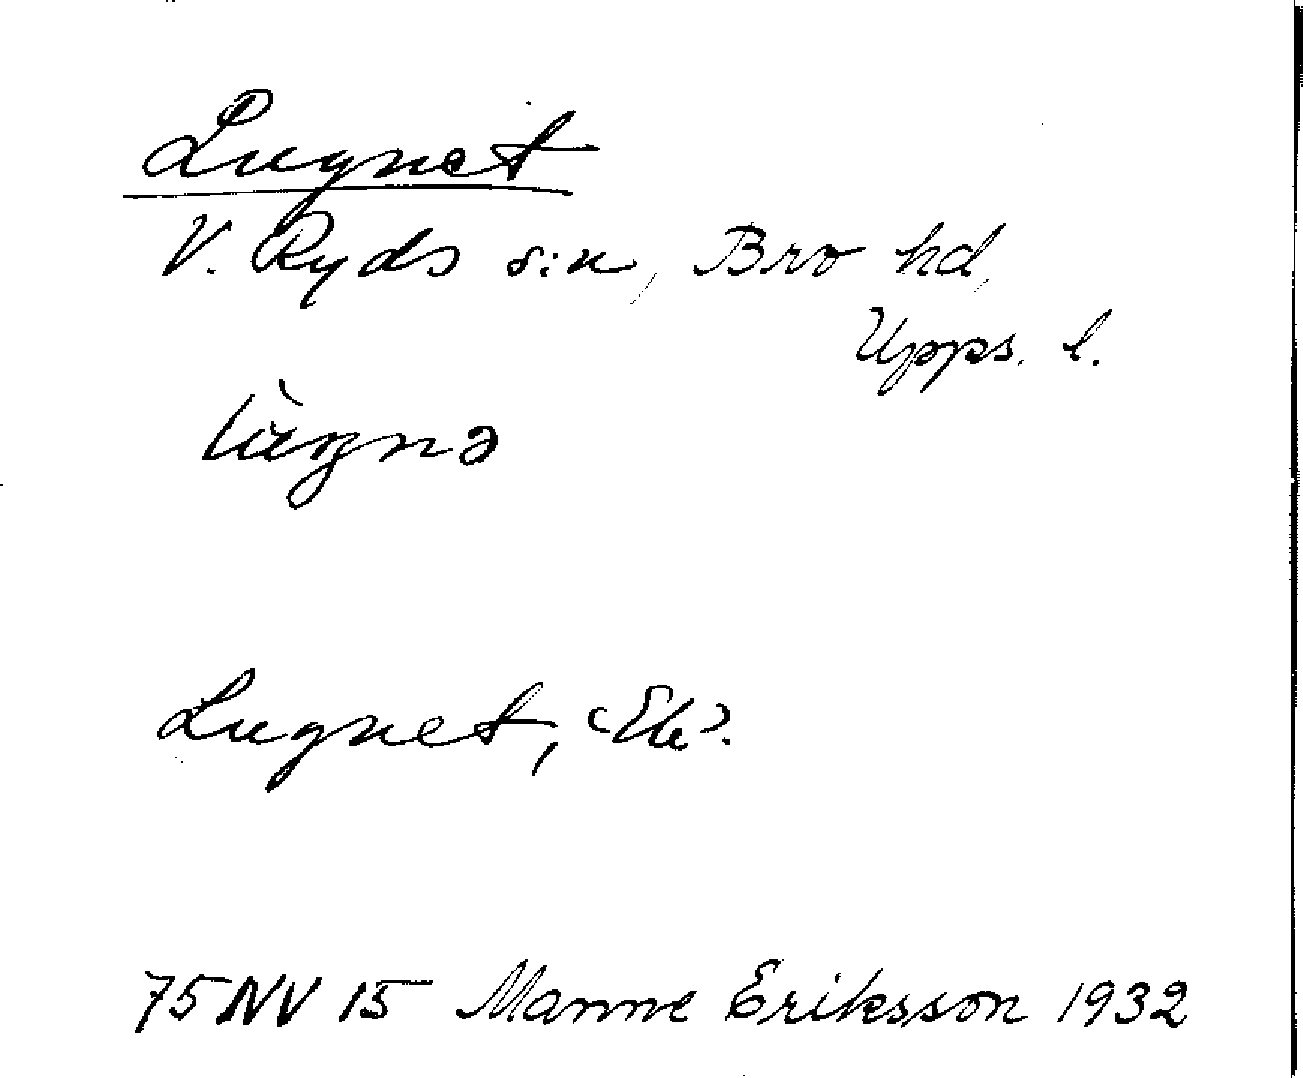 Lugnet
V. Ryds s:n, Bro hd,
Upps. l.
Lugnet, Ek.
75 NV 15 Manne Eriksson 1932